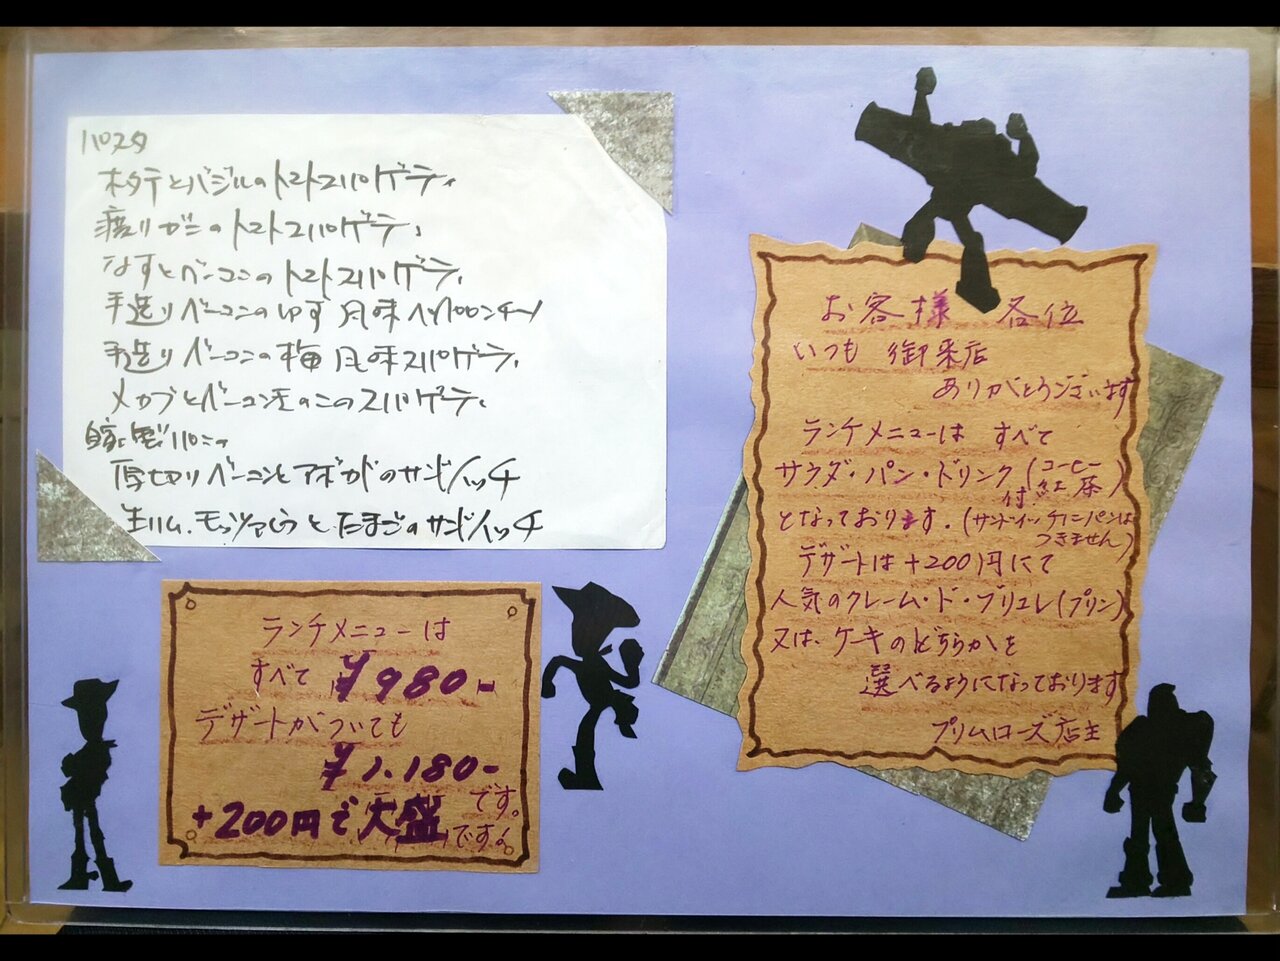 パスタ
ホタテとバジルのトマトスパゲティ
渡りガニのトマトスパゲティ
なすとベーコンのトマトスパゲティ
手造りベーコンのゆず風味ペペロンチーノ
手造りベーコンの梅風味スパゲティ
メカブとベーコンきのこのスパゲティ
自家製パニーニ
厚切りベーコンとアボカドのサンドイッチ
生ハム、モッツァレラとたまごのサンドイッチ
ランチメニューは
すべて ¥980-
デザートがついても
¥1.180-です。
+200円で大盛です。
お客様 各位
いつも 御来店
ありがとうございます
ランチメニューは すべて
サラダ・パン・ドリンク(コーヒー 紅茶)付
となっております。(サンドイッチにパンは つきません)
デザートは+200円にて
人気のクレーム・ド・ブリュレ(プリン)
又は、ケーキのどちらかを
選べるようになっております
プリムローズ店主